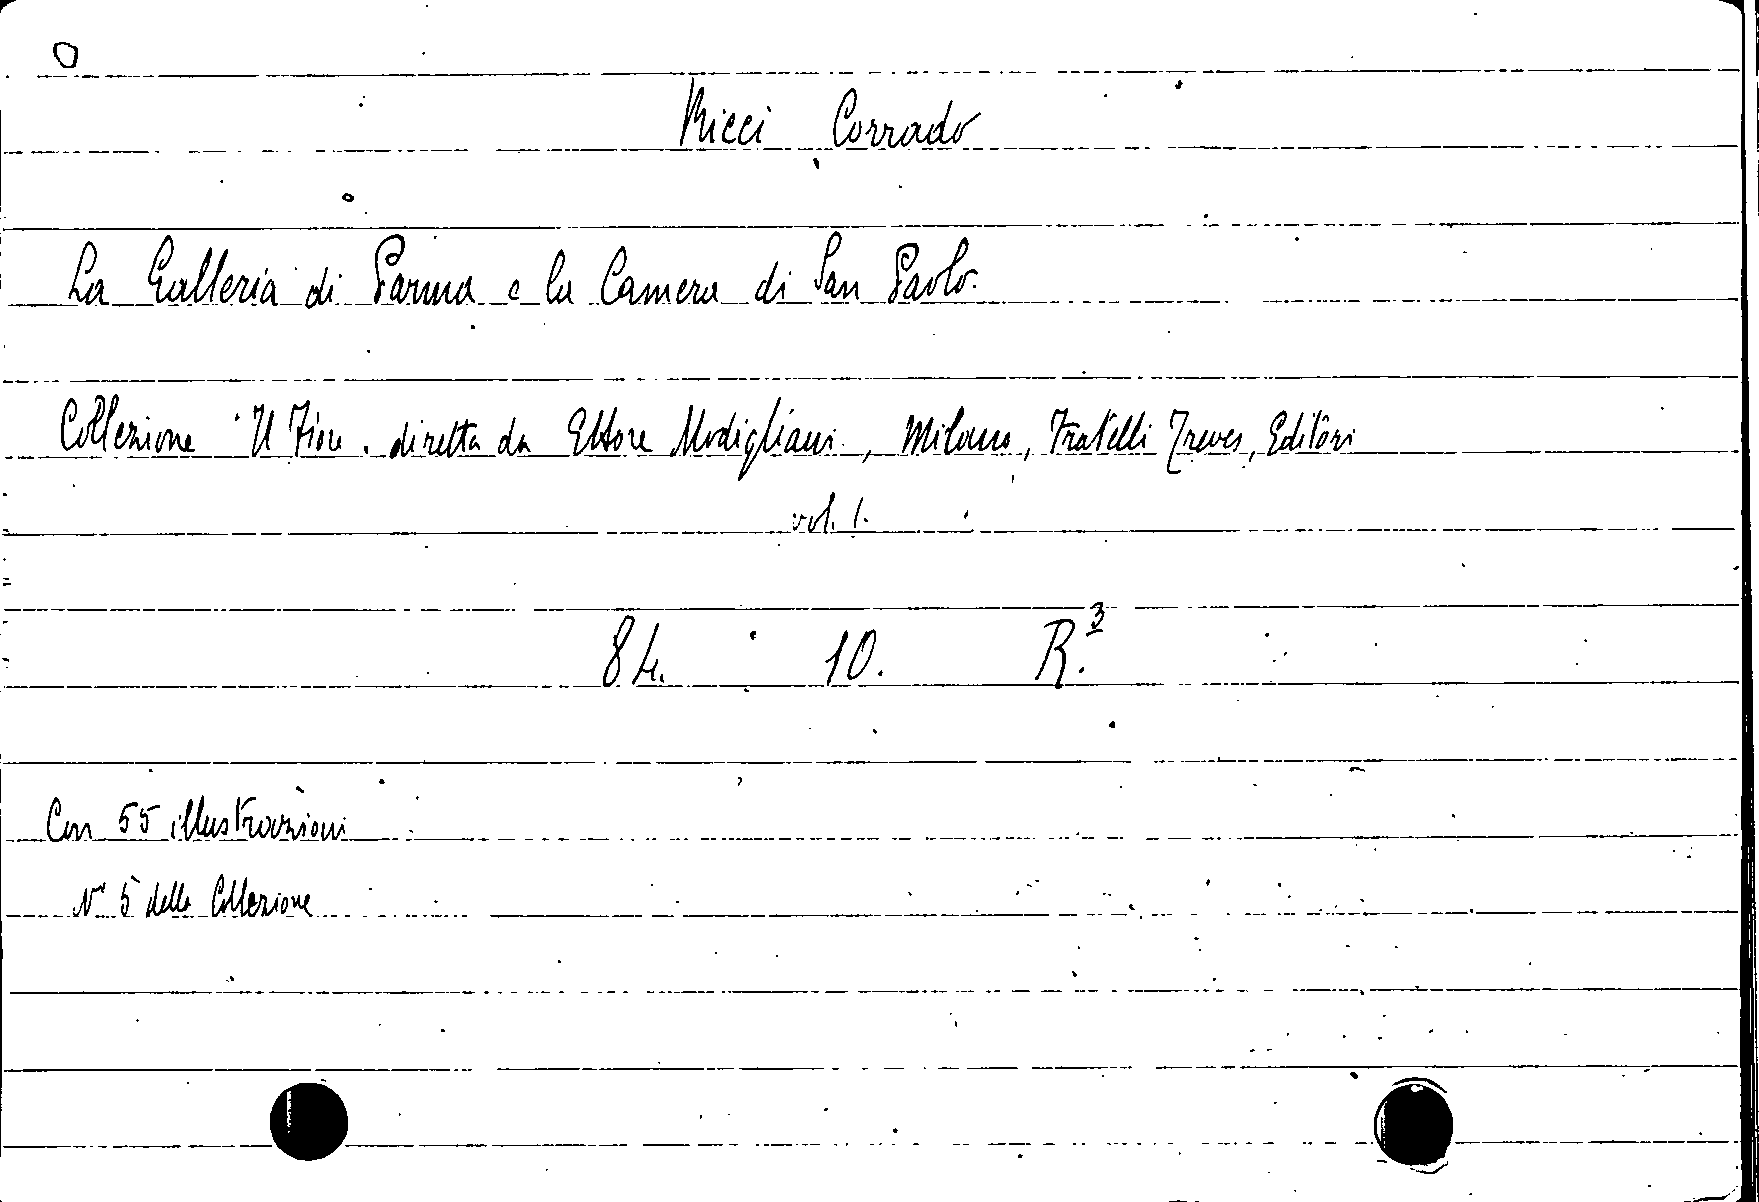 Ricci Corrado
La Galleria di Parma e la Camera di San Paolo.
Collezione "Il Fiore. diretta da Ettore Modigliani, Milano, Fratelli Treves, Editori
vol. 1.
84. 10. R.3
Con 55 illustrazioni
N° 5 della Collezione